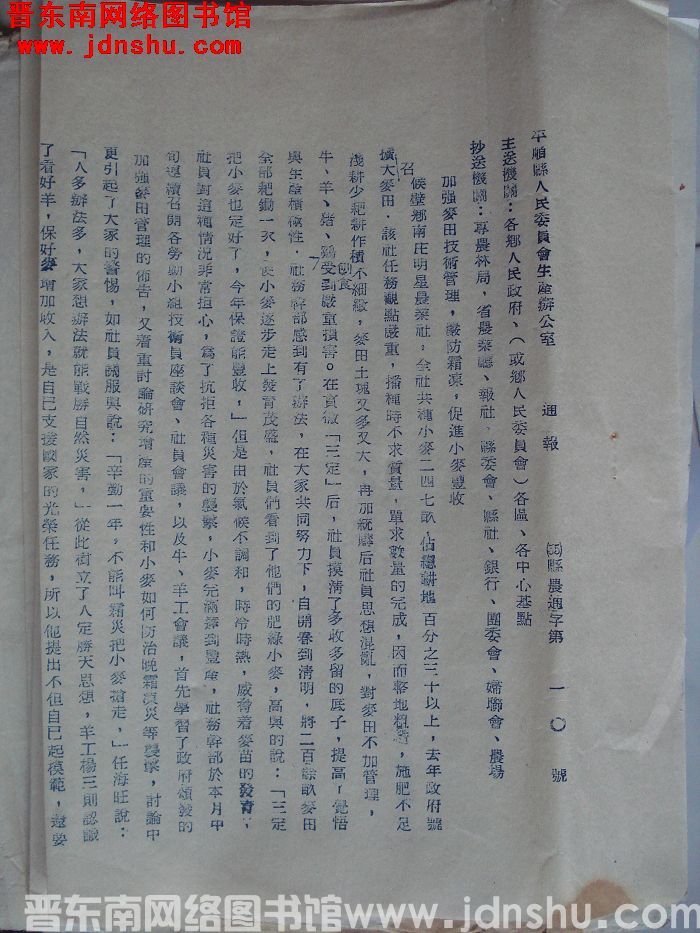 晋东南网络图书馆
www.jdnshu.com
平順縣人民委員會生產辦公室 通報 縣農通字第一〇號
主送機關：各鄉人民政府、（或鄉人民委員會）各區、各中心基點
抄送機關：專農林局，省農業廳、報社、縣委會、縣社、銀行、團委會、婦聯會、農場
加强麥田技術管理，嚴防霜凍，促進小麥豐收
候壁鄉南庄明星農業社，全社共種小麥二四七畝，佔總耕地百分之三十以上，去年政府號
召
擴大麥田·該社任務觀點嚴重，播種時不求質量，單求數量的完成，因而整地粗糙，施肥不足
淺耕少耙耕作積不細緻，麥田土塊又多又大，再加統購后社員思想混亂，對麥田不加管理，
牛、羊、猪、鷄受到嚴重損害。在貫徹「三定」后，社員摸清了多收多留的底子，提高了覺悟
刨食
與生產積極性·社務幹部感到有了辦法，在大家共同努力下，自開春到清明，將二百餘畝麥田
全部耙鋤一次，使小麥逐步走上發育茂盛，社員們看到了他們的肥綠小麥，高興的說：「三定
把小麥也定好了，今年保證能豐收，」但是由於氣候不調和，時冷時熱，威脅着麥苗的發育，
社員對這種情況非常担心，爲了抗拒各種災害的襲擊，小麥完滿達到豐產，社務幹部於本月中
旬連續召開各勞動小組技術員座談會、社員會議，以及牛、羊工會議，首先學習了政府頒發的
加强麥田管理的佈告，又着重討論研究增產的重要性和小麥如何防治晚霜凍災等襲擊，討論中
更引起了大家的警惕，如社員國服興說：「辛勤一年，不能叫霜災把小麥搶走，」任海旺說：
「人多辦法多，大家想辦法就能戰勝自然災害，」從此樹立了人定勝天思想，羊工楊三則認識
了看好羊，保好麥增加收入，是自己支援國家的光榮任務，所以他提出不但自己起模範，還要
晋东南网络图书馆 www.jdnshu.com